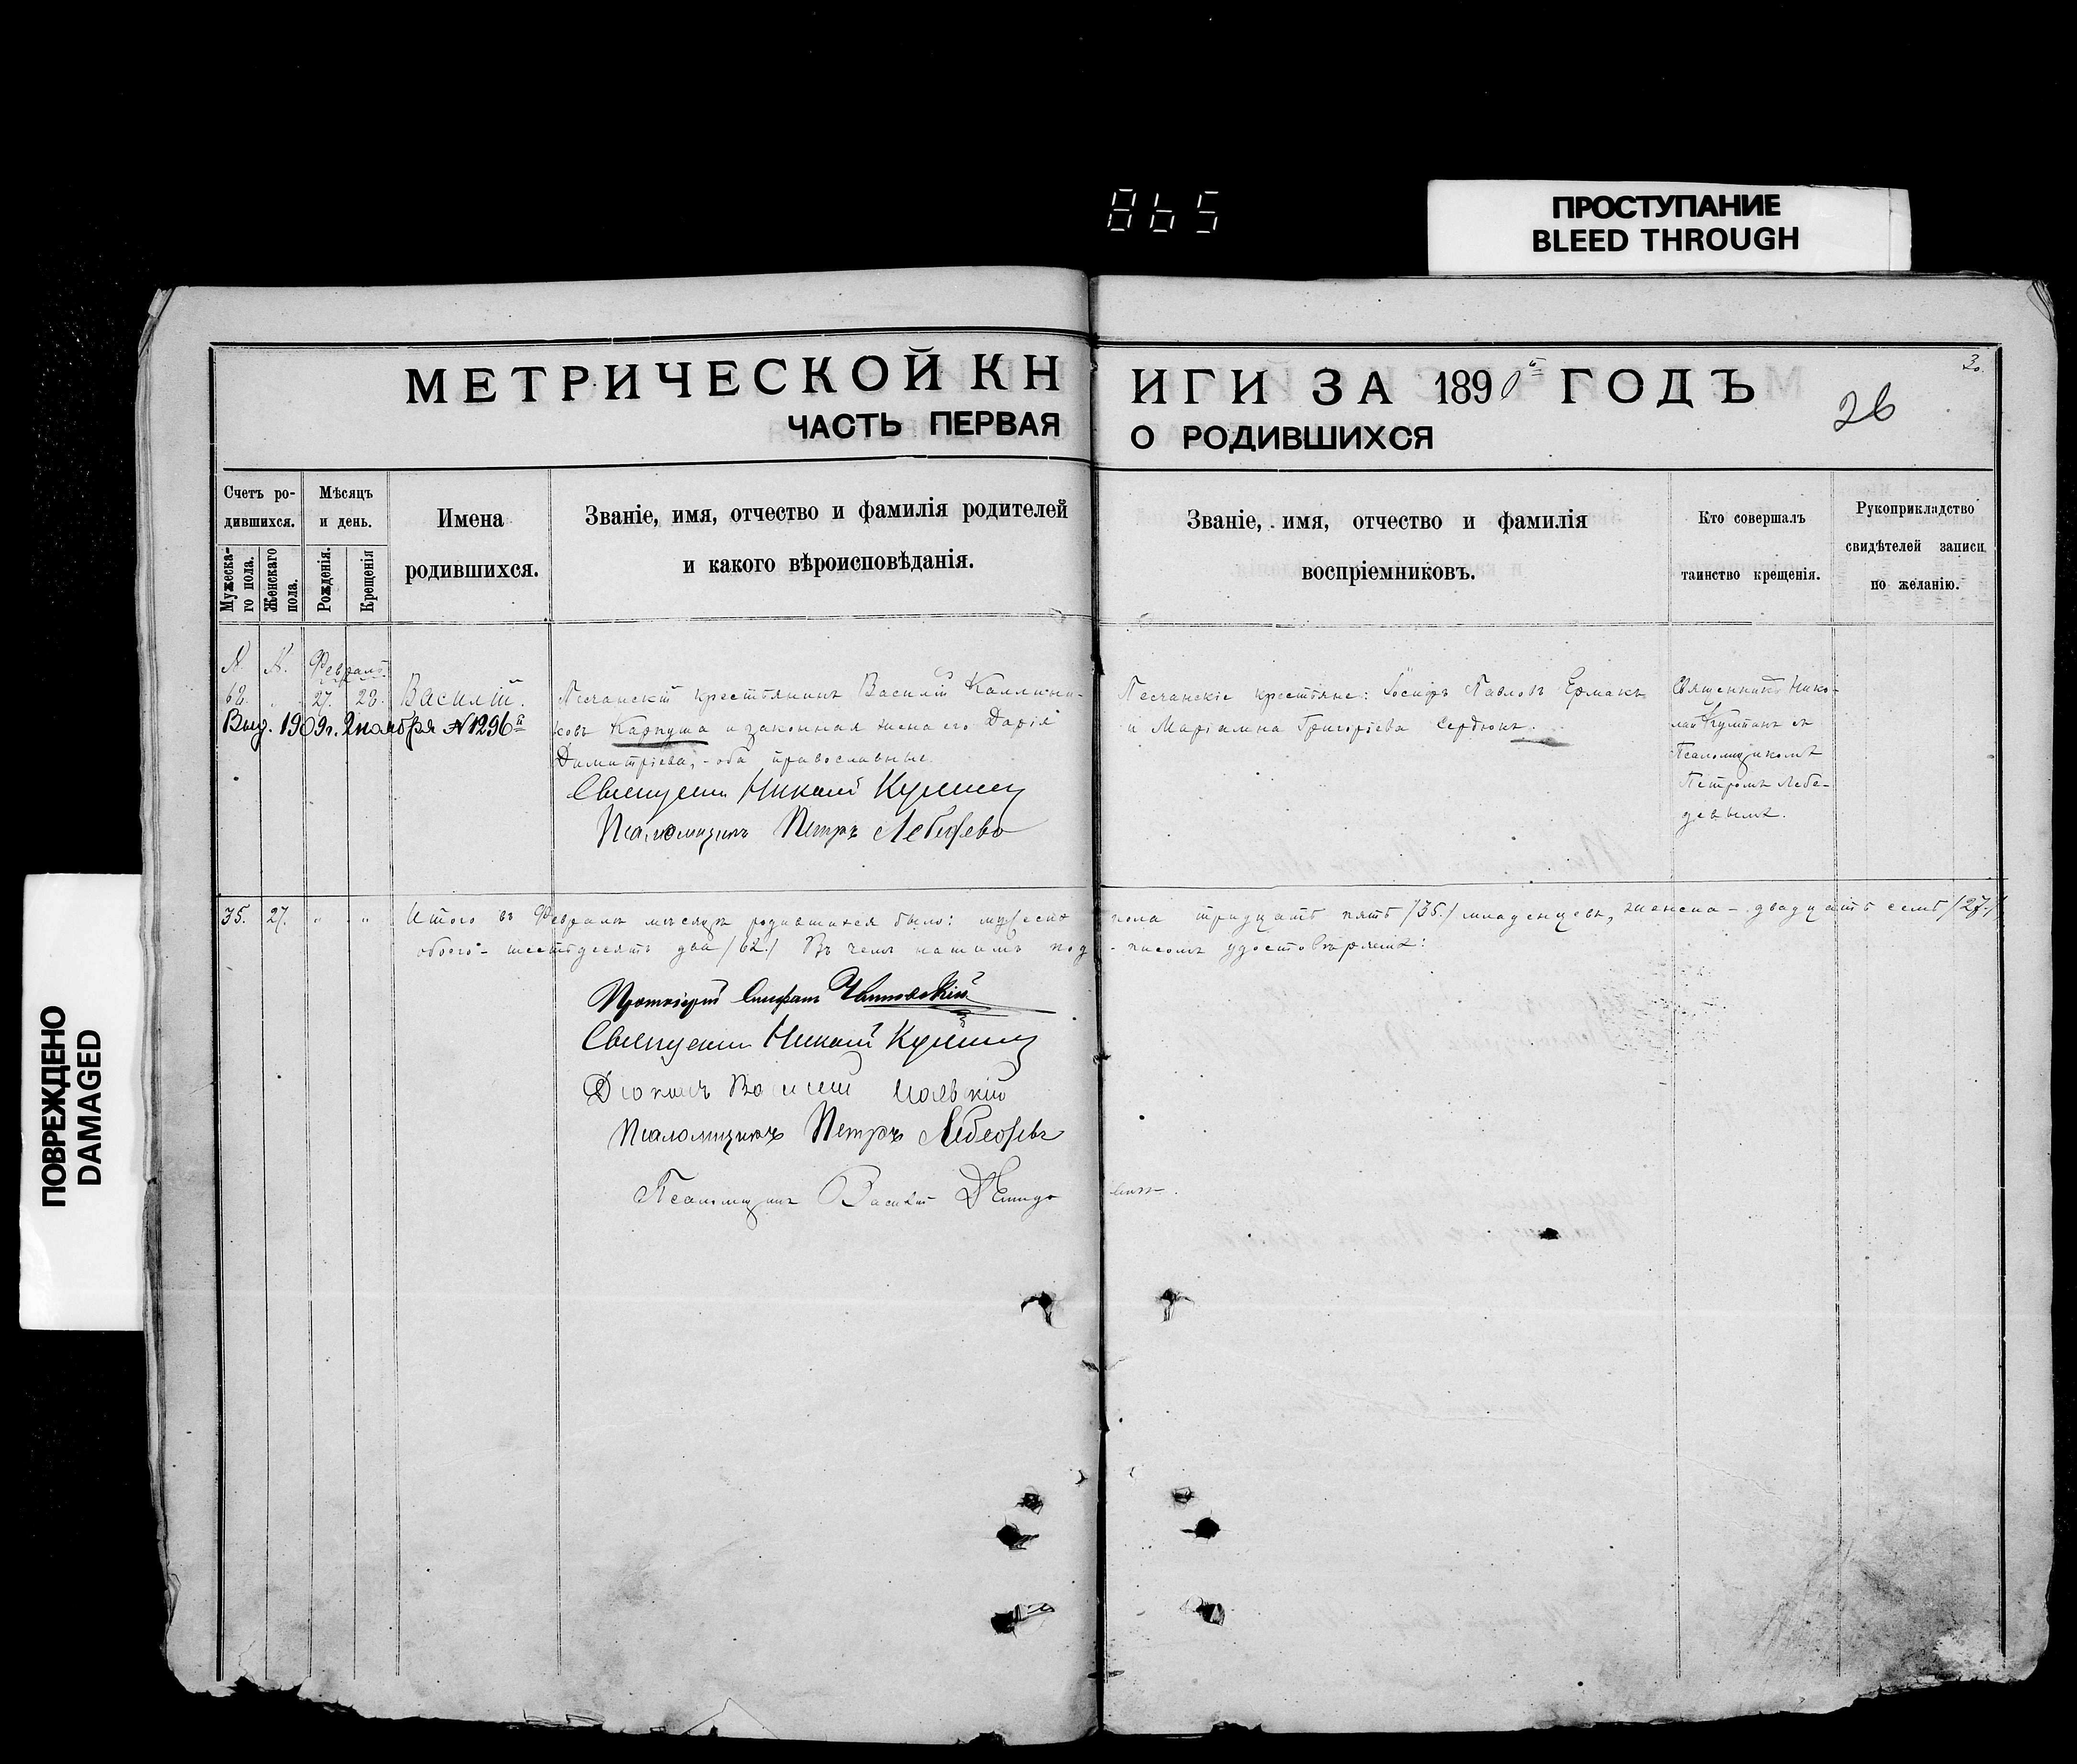 865
ПРОСТУПАНИЕ
BLEED THROUGH
ПОВРЕЖДЕНО
DAMAGED
МЕТРИЧЕСКОЙ КНИГИ ЗА 1890й ГОДЪ
ЧАСТЬ ПЕРВАЯ О РОДИВШИХСЯ
26
Счетъ ро-
дившихся.
Мужеска-
го пола.
Женскаго
пола.
Мѣсяцъ
и день.
Рожденія.
Крещенія
Имена
родившихся.
Званіе, имя, отчество и фамилія родителей
и какого вѣроисповѣданія.
Званіе, имя, отчество и фамилія
воспріемниковъ.
Кто совершалъ
таинство крещенія.
Рукоприкладство
свидѣтелей записи
по желанію.
№ №. Февраль.
62. " 27. 28. Василій.
Выд. 1909г. 2 ноября № 1296й
Песчанскій крестьянинъ Василій Каллини-
ковъ Карпуша и законная жена его Дарія
Димитріева, - оба православные.
Священникъ Николай
Псаломщикъ Петръ Лебедевъ
Песчанскіе крестьяне: Іосифъ Павловъ Ермакъ
и Маріамна Григоріева Сердюкъ.
Священникъ Нико-
лай съ
Псаломщикомъ
Петромъ Лебе-
девымъ.
35. 27. " " Итого въ Февралѣ мѣсяцѣ родившихся было: мужеска пола тридцать пять /35/ младенцевъ, женска - двадцать семь /27./
обоего - шестьдесятъ два /62./ Въ чемъ нашимъ под-писомъ удостовѣряемъ:
Протоіерей Стефанъ
Священникъ Николай
Діаконъ Василій
Псаломщикъ Петръ Лебедевъ
Псаломщикъ Василій